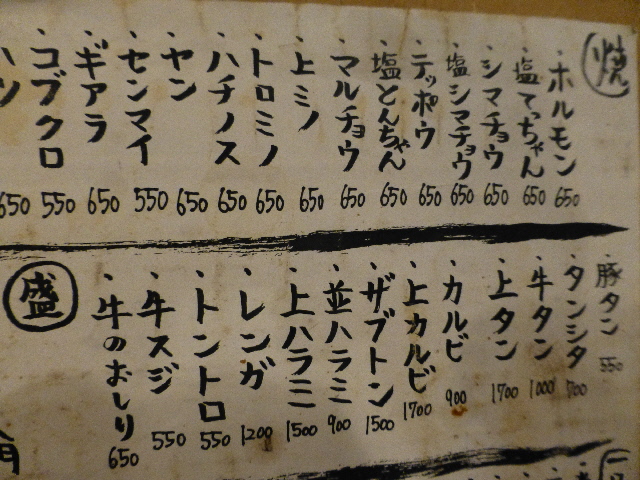 焼
・ホルモン 650
・塩てっちゃん 650
・シマチョウ 650
・塩シマチョウ 650
・テッポウ 650
・塩とんちゃん 650
・マルチョウ 650
・上ミノ 650
・トロミノ 650
・ハチノス 650
・ヤン 650
・センマイ 550
・ギアラ 650
・コブクロ 550
ハツ 650
・豚タン 550
・タンシタ 700
・牛タン 1000
・上タン 1700
・カルビ 900
・上カルビ 1700
・ザブトン 1500
・並ハラミ 900
・上ハラミ 1500
・レンガ 1200
・トントロ 550
・牛スジ 550
・牛のおしり 650
盛